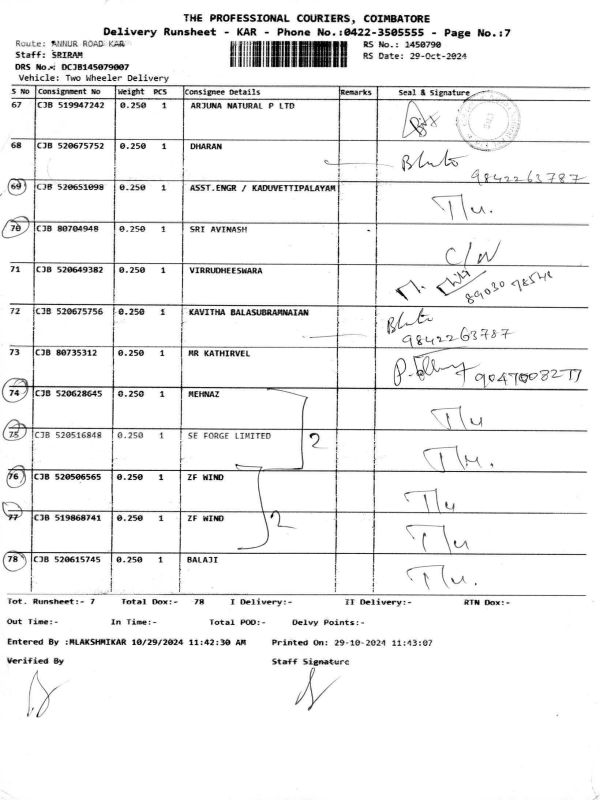 THE PROFESSIONAL COURIERS, COIMBATORE
Delivery Runsheet - KAR - Phone No.:0422-3505555 - Page No.:7
Route: ANNUR ROAD KAR RS No.: 1450790
Staff: SRIRAM RS Date: 29-Oct-2024
DRS No.: DCJB145079007
Vehicle: Two Wheeler Delivery
S No Consignment No Weight PCS Consignee Details Remarks Seal & Signature
67 CJB 519947242 0.250 1 ARJUNA NATURAL P LTD
68 CJB 520675752 0.250 1 DHARAN
9842263787
69 CJB 520651098 0.250 1 ASST.ENGR / KADUVETTIPALAYAM
70 CJB 80704948 0.250 1 SRI AVINASH
71 CJB 520649382 0.250 1 VIRRUDHEESWARA
72 CJB 520675756 0.250 1 KAVITHA BALASUBRAMNAIAN
9842263787
73 CJB 80735312 0.250 1 MR KATHIRVEL
74 CJB 520628645 0.250 1 MEHNAZ
2
75 CJB 520516848 0.250 1 SE FORGE LIMITED
76 CJB 520506565 0.250 1 ZF WIND
2
77 CJB 519868741 0.250 1 ZF WIND
78 CJB 520615745 0.250 1 BALAJI
Tot. Runsheet:- 7 Total Dox:- 78 I Delivery:- II Delivery:- RTN Dox:-
Out Time:- In Time:- Total POD:- Delvy Points:-
Entered By :MLAKSHMIKAR 10/29/2024 11:42:30 AM Printed On: 29-10-2024 11:43:07
Verified By Staff Signature